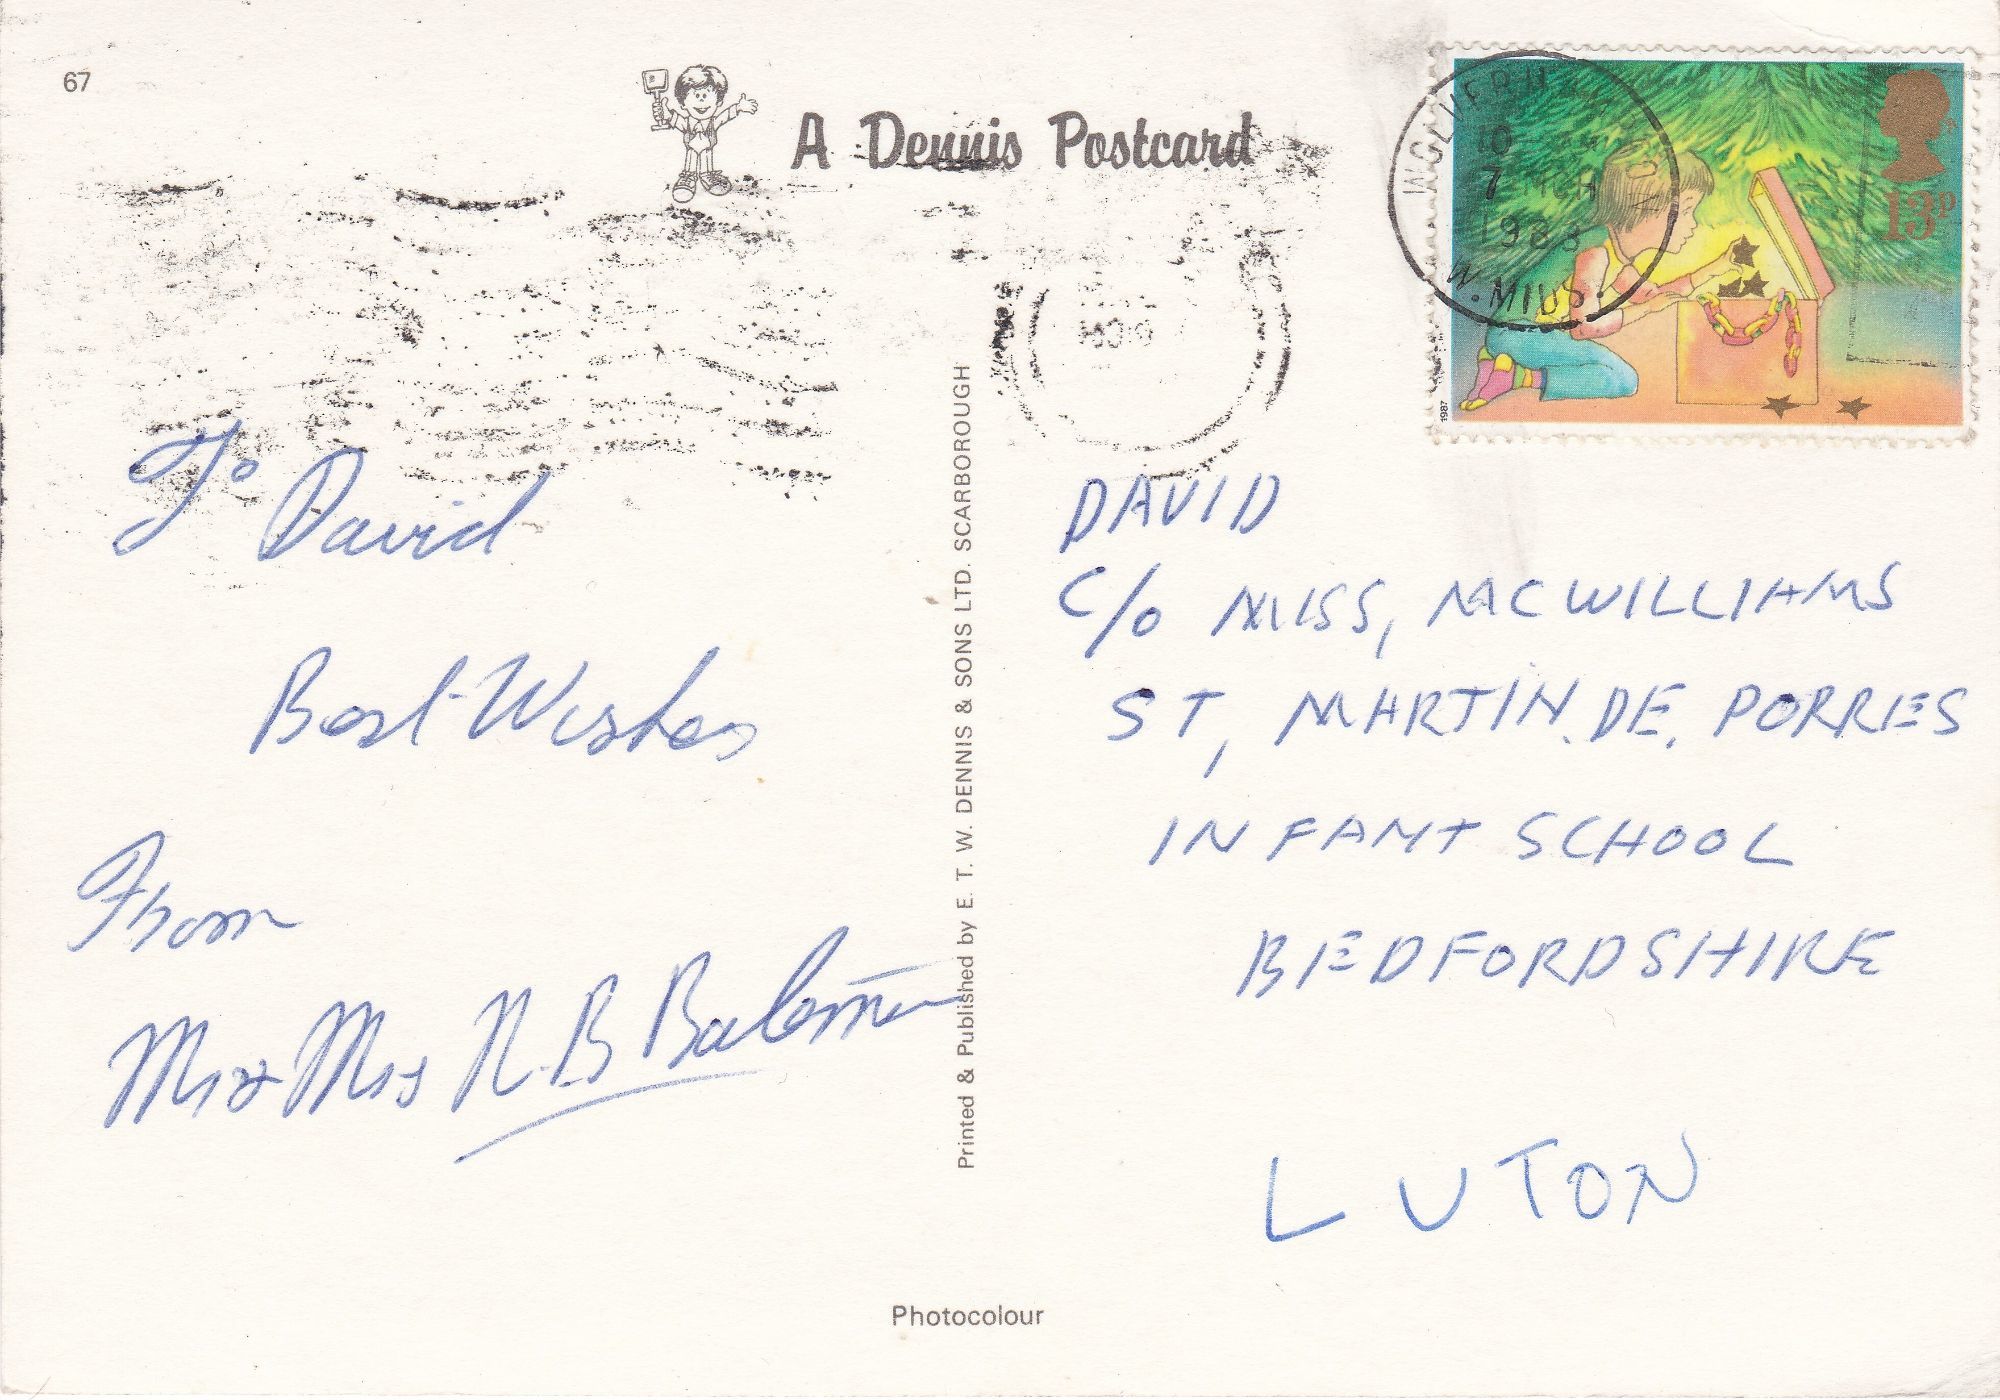 67
A Dennis Postcard
13p
1987
WOLVERH
10
7 MCH
1988
W. MIDS.
To David
Best Wishes
From
Mr & Mrs N. B Bateman
Printed & Published by E. T. W. DENNIS & SONS LTD. SCARBOROUGH
DAVID
C/O MISS, MCWILLIAMS
ST, MARTIN. DE. PORRES
INFANT SCHOOL
BEDFORDSHIRE
LUTON
Photocolour